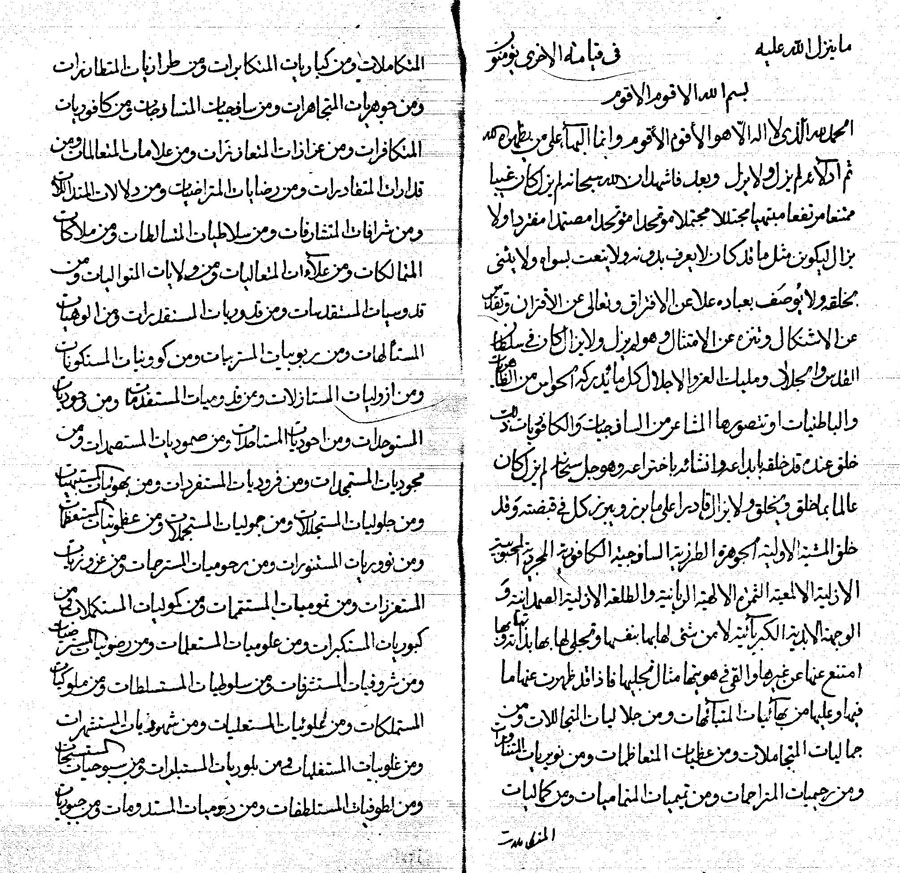 ما ينزل الله عليه في قيامته الاخرى يؤمنون
بسم الله الاقوم الاقوم
الحمد لله الذي لا اله الا هو الأقوم الأقوم وانما البهاء على من يظهره الله
ثم ادلائه لم يزل ولا يزل وبعد فاشهد ان الله سبحانه لم يزل كان غيبا
ممتنعا مرتفعا مبتهيا مجتللا مجتملا متوحدا مصتمدا مفتردا ولا
يزال ليكونن مثل ما قد كان لا يعرف بدونه ولا ينعت بسواه ولا يثنى
بخلقه ولا يوصف بعباده علا عن الافتراق وتعالى عن الأقتران وتقدس
عن الاشتكال وتنزه عن الامتثال وهو لم يزل ولا يزال كان في سلطان
القدس والجلال ومليك العز والاجلال كل ما يدركه الحواس من الظاهرات
والباطنيات او يتصورها المشاعر من السافجيات والكافوريات ذلك
خلق عنده قد خلقه بابداعه وانشائه باختراعه وهو جل سبحانه لم يزل كان
عالما بما خلق ويخلق ولا يزال قادرا على ما برء ويبرء كل في قبضته وقد
خلق المشية الاولية الجوهرة الطرزية السافجية الكافورية المجردية المحبوبية
الازلية الالمعية الثمرة الالهية الربانية والطلعة الازلية الصمدانية و
الوجهة الابدية الكبريائية لا من شئ لها بها بنفسها وتجلى لها بها بذاتها وبها
امتنع عنها عن غيرها والقى في هويتها مثال تجليها فاذا قد ظهرت عنها ما
فيها وعليها من بهائيات المتبائهات ومن جلاليات المتجاللات ومن
جماليات المتجاملات ومن عظميات المتعاظمات ومن نوريات المتناورات
ومن رحميات المتراحمات ومن تميميات المتماميات ومن كماليات
المتكاملات
المتكاملات ومن كباريات المتكابرات ومن طرازيات المتطارزات
ومن جوهريات المتجاهرات ومن سافجيات المتسافجات ومن كافوريات
المتكافرات ومن عزازات المتعازرات ومن علامات المتعالمات ومن
قدارات المتقادرات ومن رضايات المتراضيات ومن دلالات المتدللات
ومن شرافات المتشارفات ومن سلاطيات المتسالطات ومن ملاكات
المتمالكات ومن علاءات المتعاليات ومن ولايات المتواليات ومن
قدوسيات المستقدسات ومن قدوريات المستقدرات ومن الوهيات
المستألهات ومن ربوبيات المستربيات ومن كوونيات المستكونات
ومن ازوليات المستازلات ومن قدوميات المستقدمات ومن وحوديات
المستوحدات ومن احوديات المستاحدات ومن صموديات المستصمدات ومن
مجوديات المستمجدات ومن فروديات المستفردات ومن بهوئيات المستبهيات
ومن جلوليات المستجللات ومن جموليات المستجملات ومن عظوميات المستعظمات
ومن نووريات المستنورات ومن رحوميات المسترحمات ومن عزوزيات
المستعززات ومن تموميات المستتممات ومن كموليات المستكملات ومن
كبوريات المستكبرات ومن علوميات المستعلمات ومن رضويات المسترضيات
ومن شروفيات المستشرفات ومن سلوطيات المستسلطات ومن ملوكيات
المستملكات ومن علوئيات المستعليات ومن شهوديات المستشهرات
ومن غلوبيات المستغلبات ومن بلوريات المستبلرات ومن سبوحيات المستسبحات
ومن لطوفيات المستلطفات ومن دوميات المستدومات ومن حبوبيات